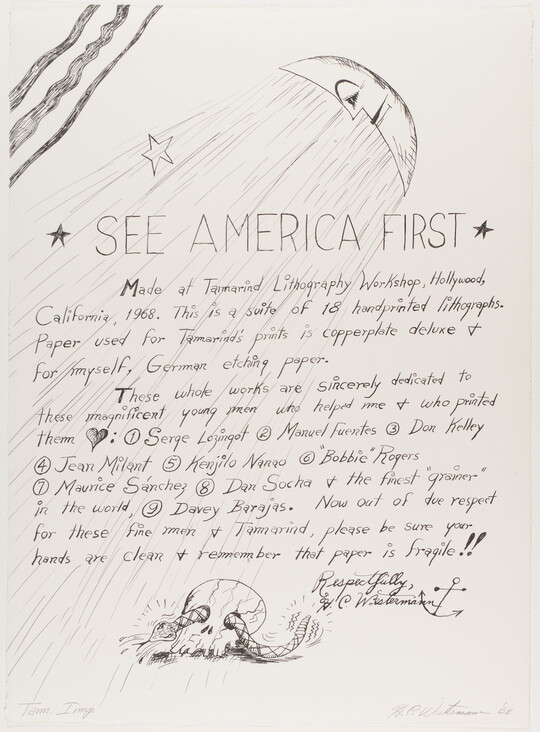 SEE AMERICA FIRST
Made at Tamarind Lithography Workshop, Hollywood,
California, 1968. This is a suite of 18 handprinted lithographs.
Paper used for Tamarind's prints is copperplate deluxe &
for myself, German etching paper.
These whole works are sincerely dedicated to
these magnificent young men who helped me & who printed
them : ① Serge Lozingot ② Manuel Fuentes ③ Don Kelley
④ Jean Milant ⑤ Kenjilo Nanao ⑥ "Bobbie" Rogers
⑦ Maurice Sánchez ⑧ Dan Socha & the finest "grainer"
in the world, ⑨ Davey Barajas. Now out of due respect
for these fine men & Tamarind, please be sure your
hands are clean & remember that paper is fragile!!
Respectfully,
H. C. Westermann
Tam. Imp.
H. C. Westermann '68